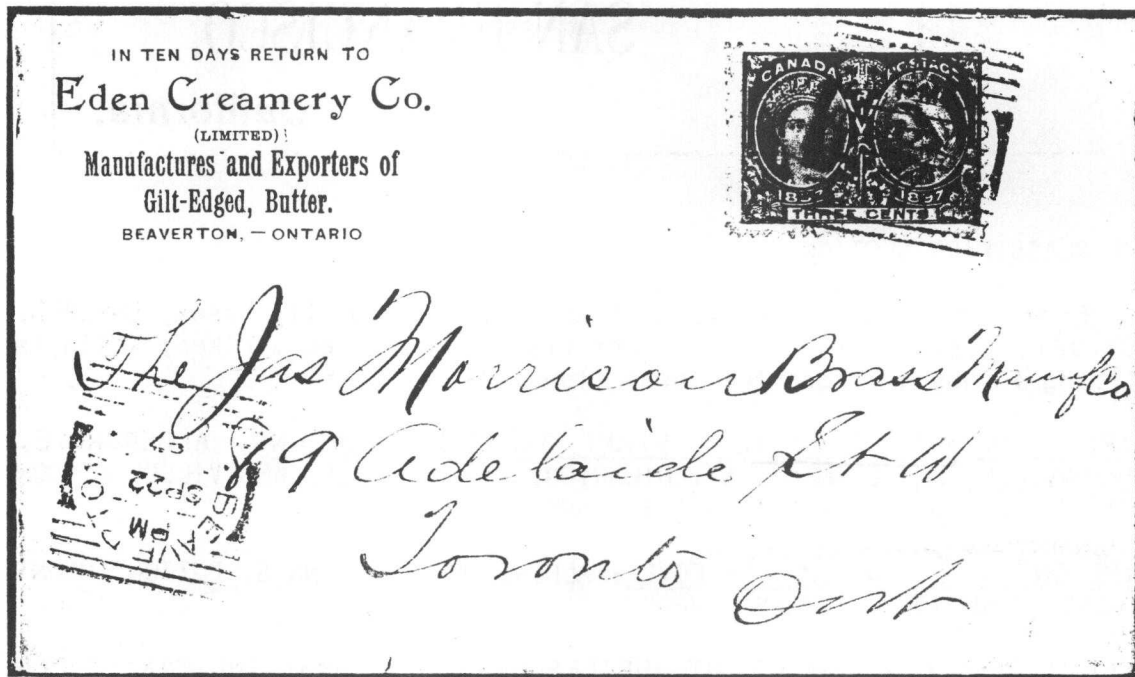 IN TEN DAYS RETURN TO
Eden Creamery Co.
(LIMITED)
Manufactures and Exporters of
Gilt-Edged, Butter.
BEAVERTON, — ONTARIO
CANADA POSTAGE
1897 1897
THREE CENTS
The Jas Morrison Brass Manufco
89 Adelaide St W
Toronto Ont
PM
SP 22